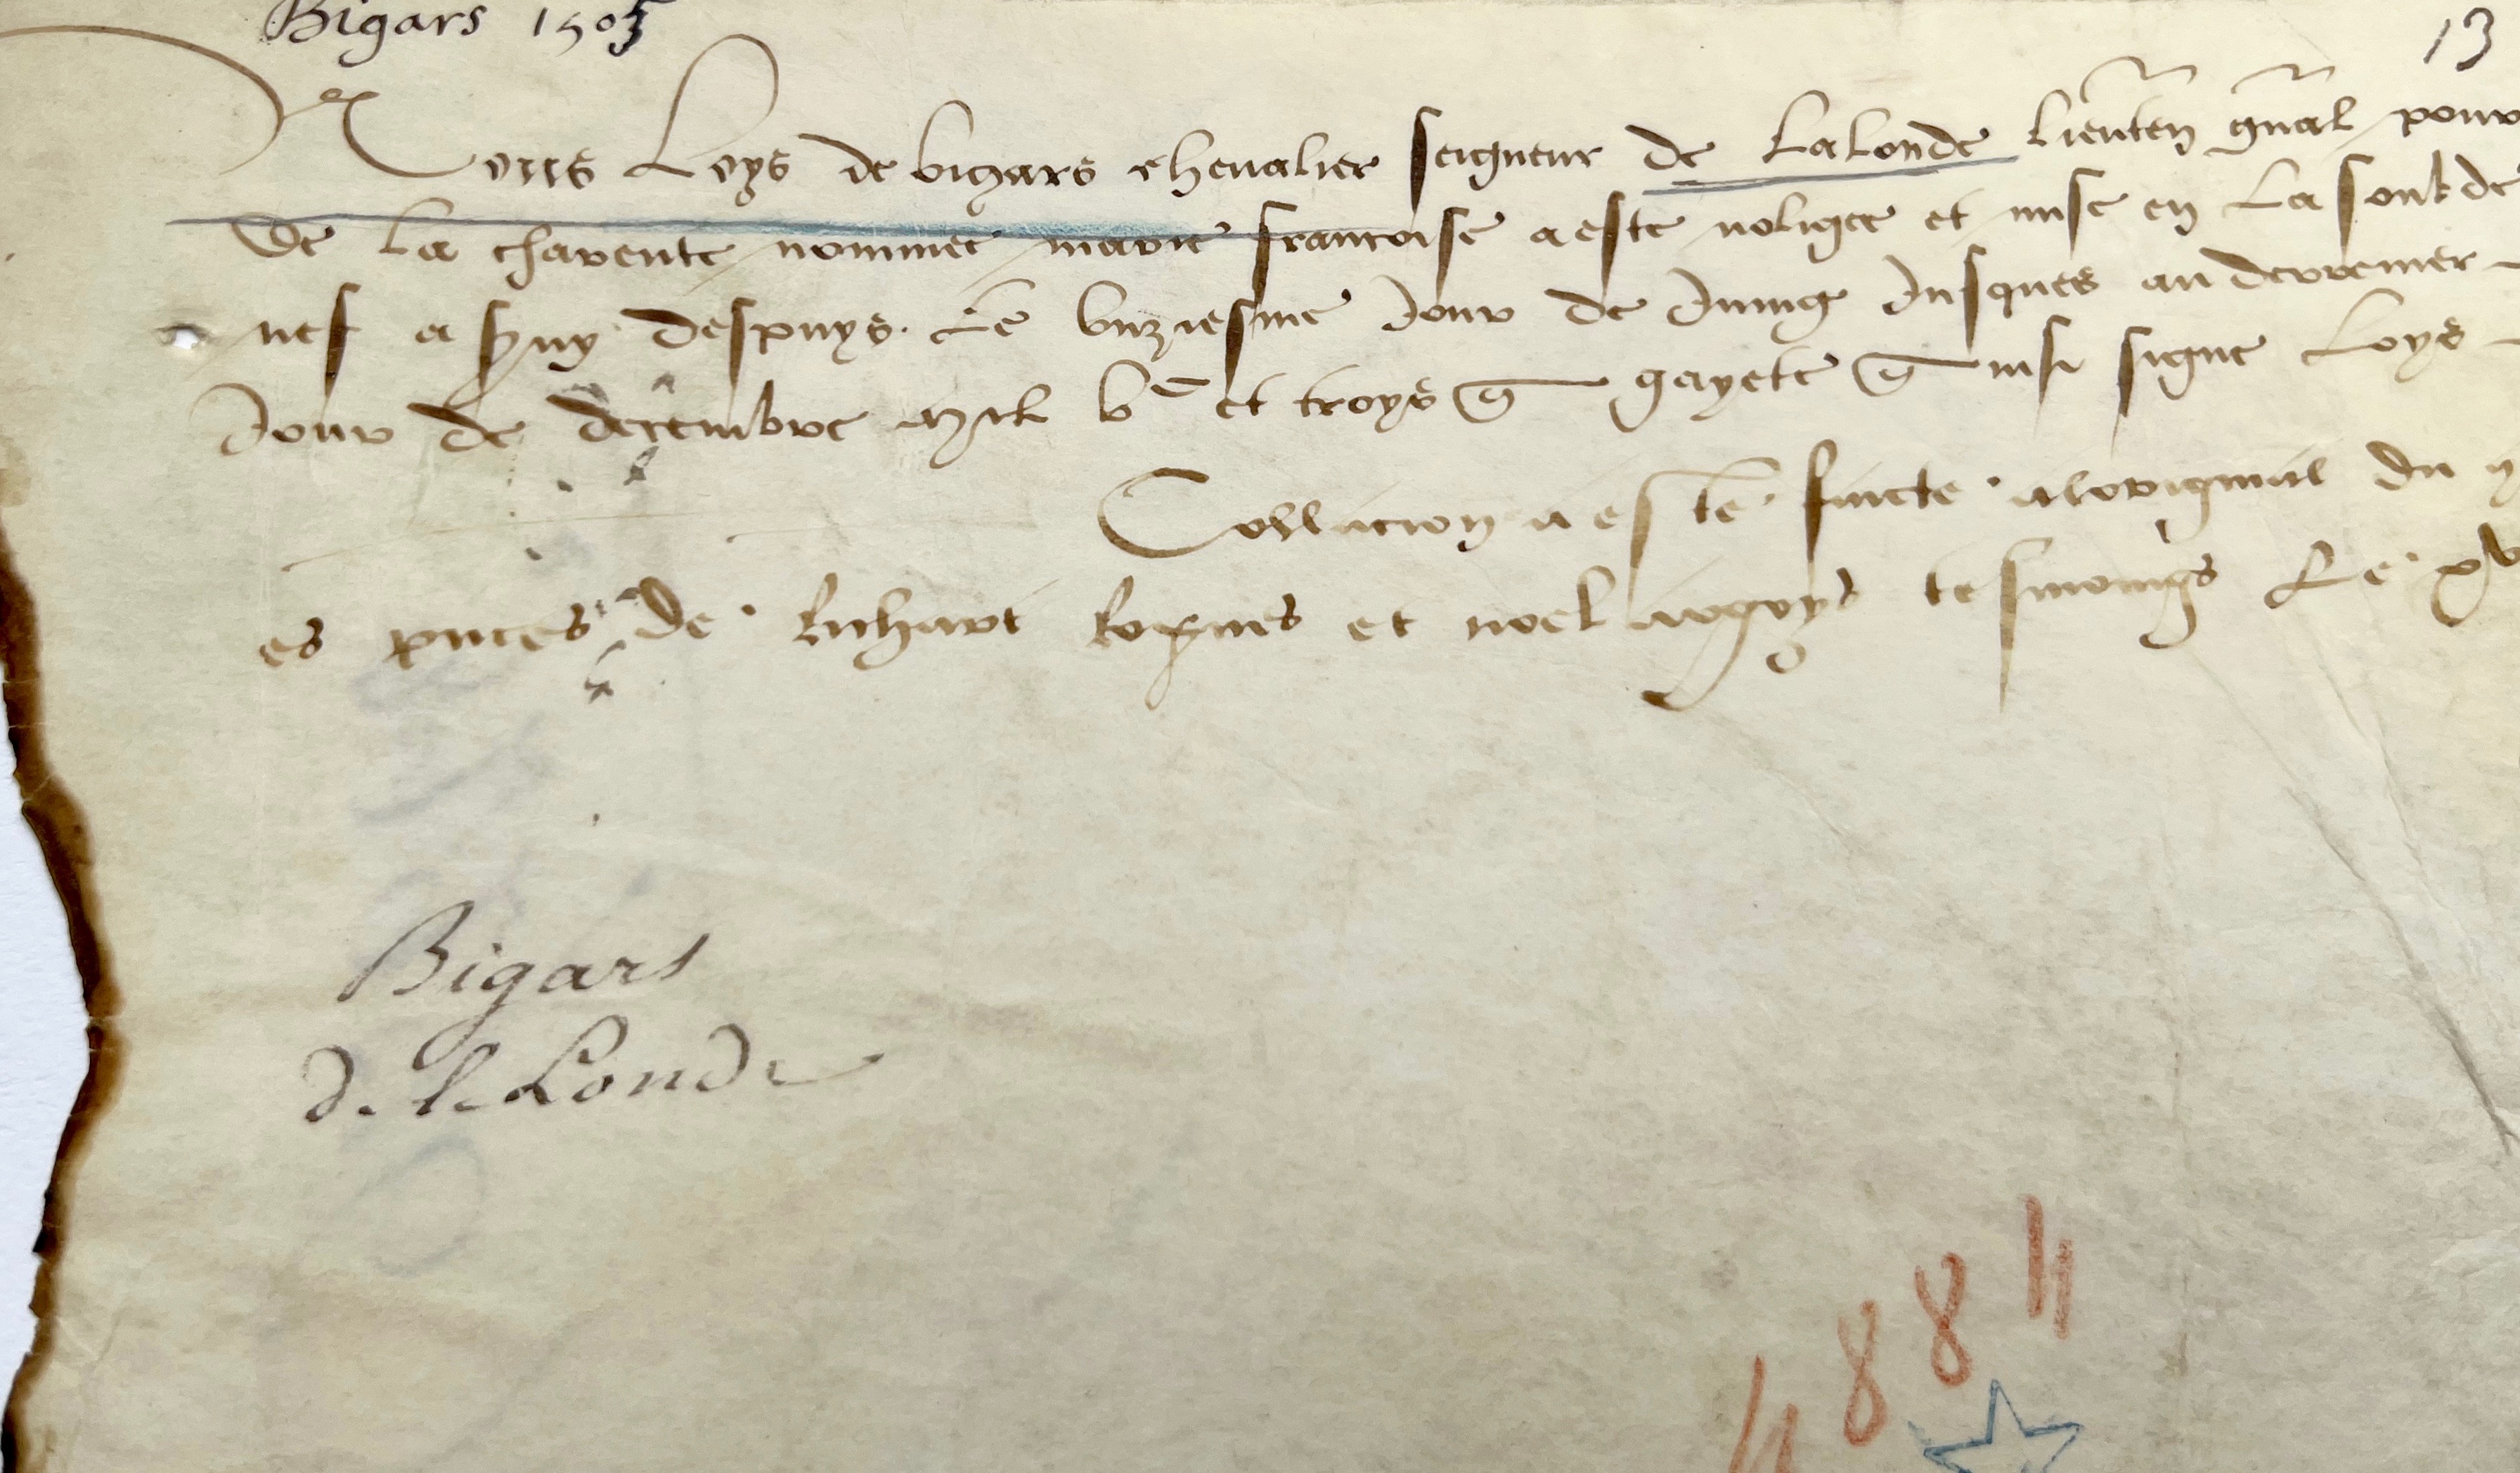 Bigars 1503
13
Nous Loys de bigars chevalier seigneur de Lalonde lieuten gnal pour
De la charente nommee marie francoise a este noligee et mise en La soulde
nef a syny despuys Le unziesme Jour de Juing Jusques au derrenier
Jour de decembre mil vc et troys gayete signe Loys
Collacion a este faicte a loriginal du
es de Richart et noel tesmoings Le
Bigars
de la Londe
4884